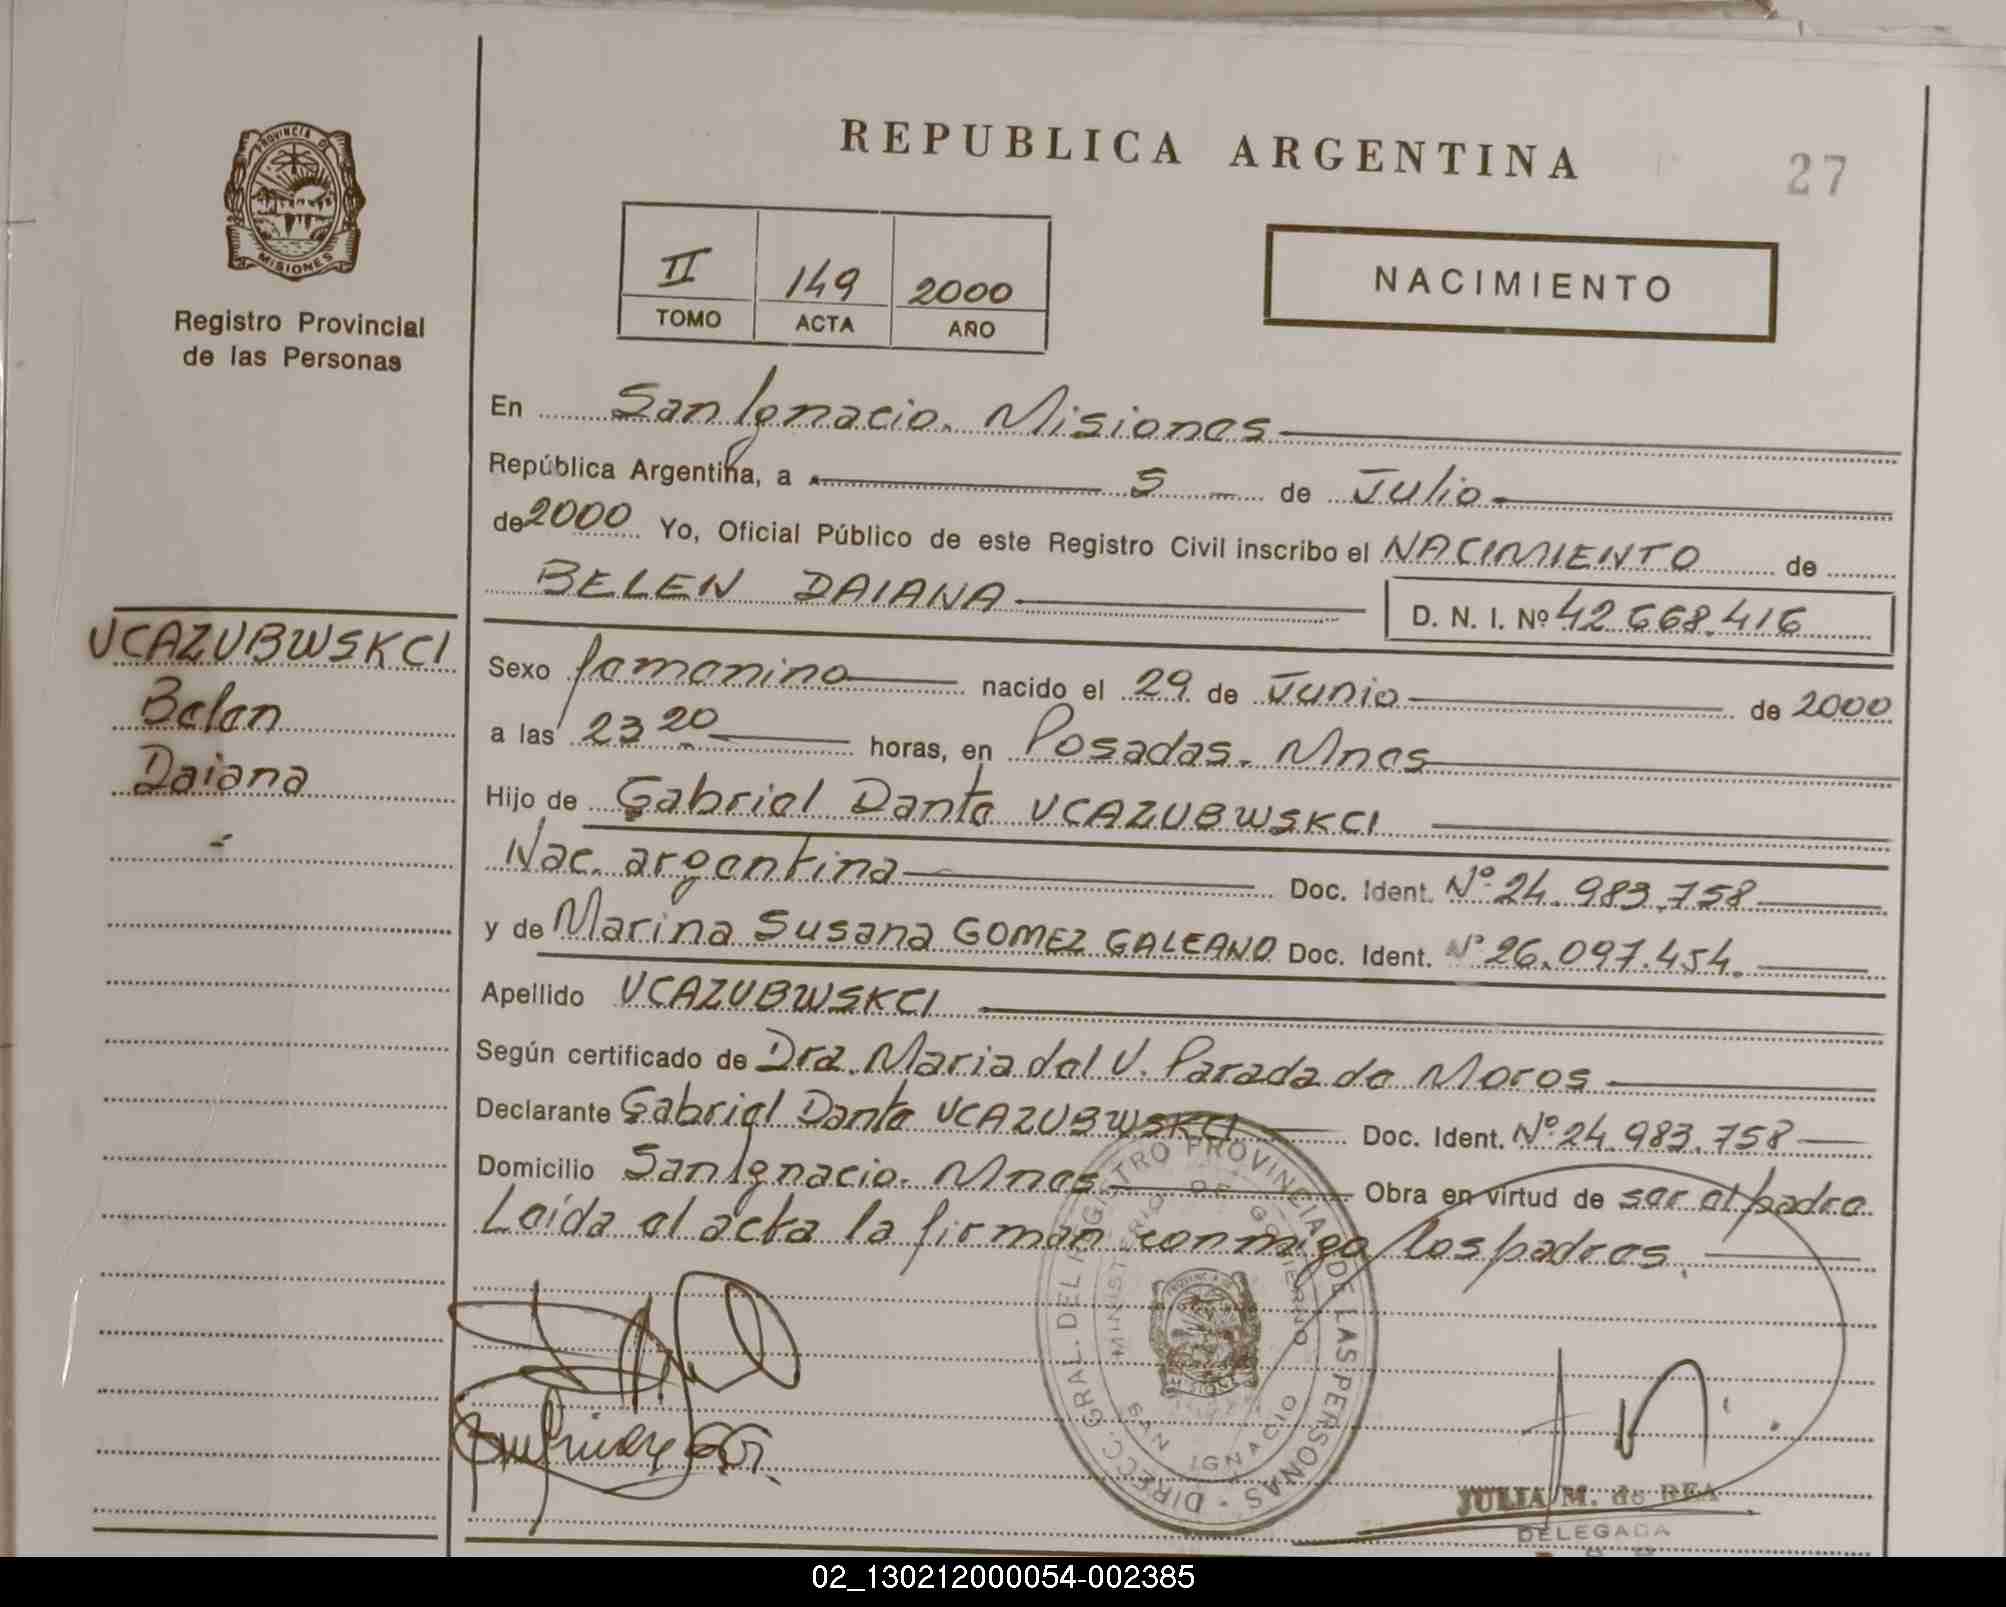 REPUBLICA ARGENTINA
27
PROVINCIA DE
MISIONES
Registro Provincial
de las Personas
II 149 2000
TOMO ACTA AÑO
NACIMIENTO
En San Ignacio. Misiones
República Argentina, a 5 de Julio
de 2000 Yo, Oficial Público de este Registro Civil inscribo el NACIMIENTO de
BELEN DAIANA D. N. I. Nº 42.668.416
UCAZUBWSKCI
Belen
Daiana
Sexo femenino nacido el 29 de Junio de 2000
a las 23 20 horas, en Posadas. Mnes
Hijo de Gabriel Dante UCAZUBWSKCI
Nac. argentina Doc. Ident. Nº 24.983.758
y de Marina Susana GOMEZ GALEANO Doc. Ident. Nº 26.097.454.
Apellido UCAZUBWSKCI
Según certificado de Dra. Maria del V. Parada de Moros
Declarante Gabriel Dante UCAZUBWSKCI Doc. Ident. Nº 24.983.758
Domicilio San Ignacio. Mnes Obra en virtud de ser el padre
Leída el acta la firman conmigo los padres.
DIRECC. GRAL. DEL REGISTRO PROVINCIAL DE LAS PERSONAS
MINISTERIO DE GOBIERNO
SAN IGNACIO
JULIA M. de REA
DELEGADA
02_130212000054-002385